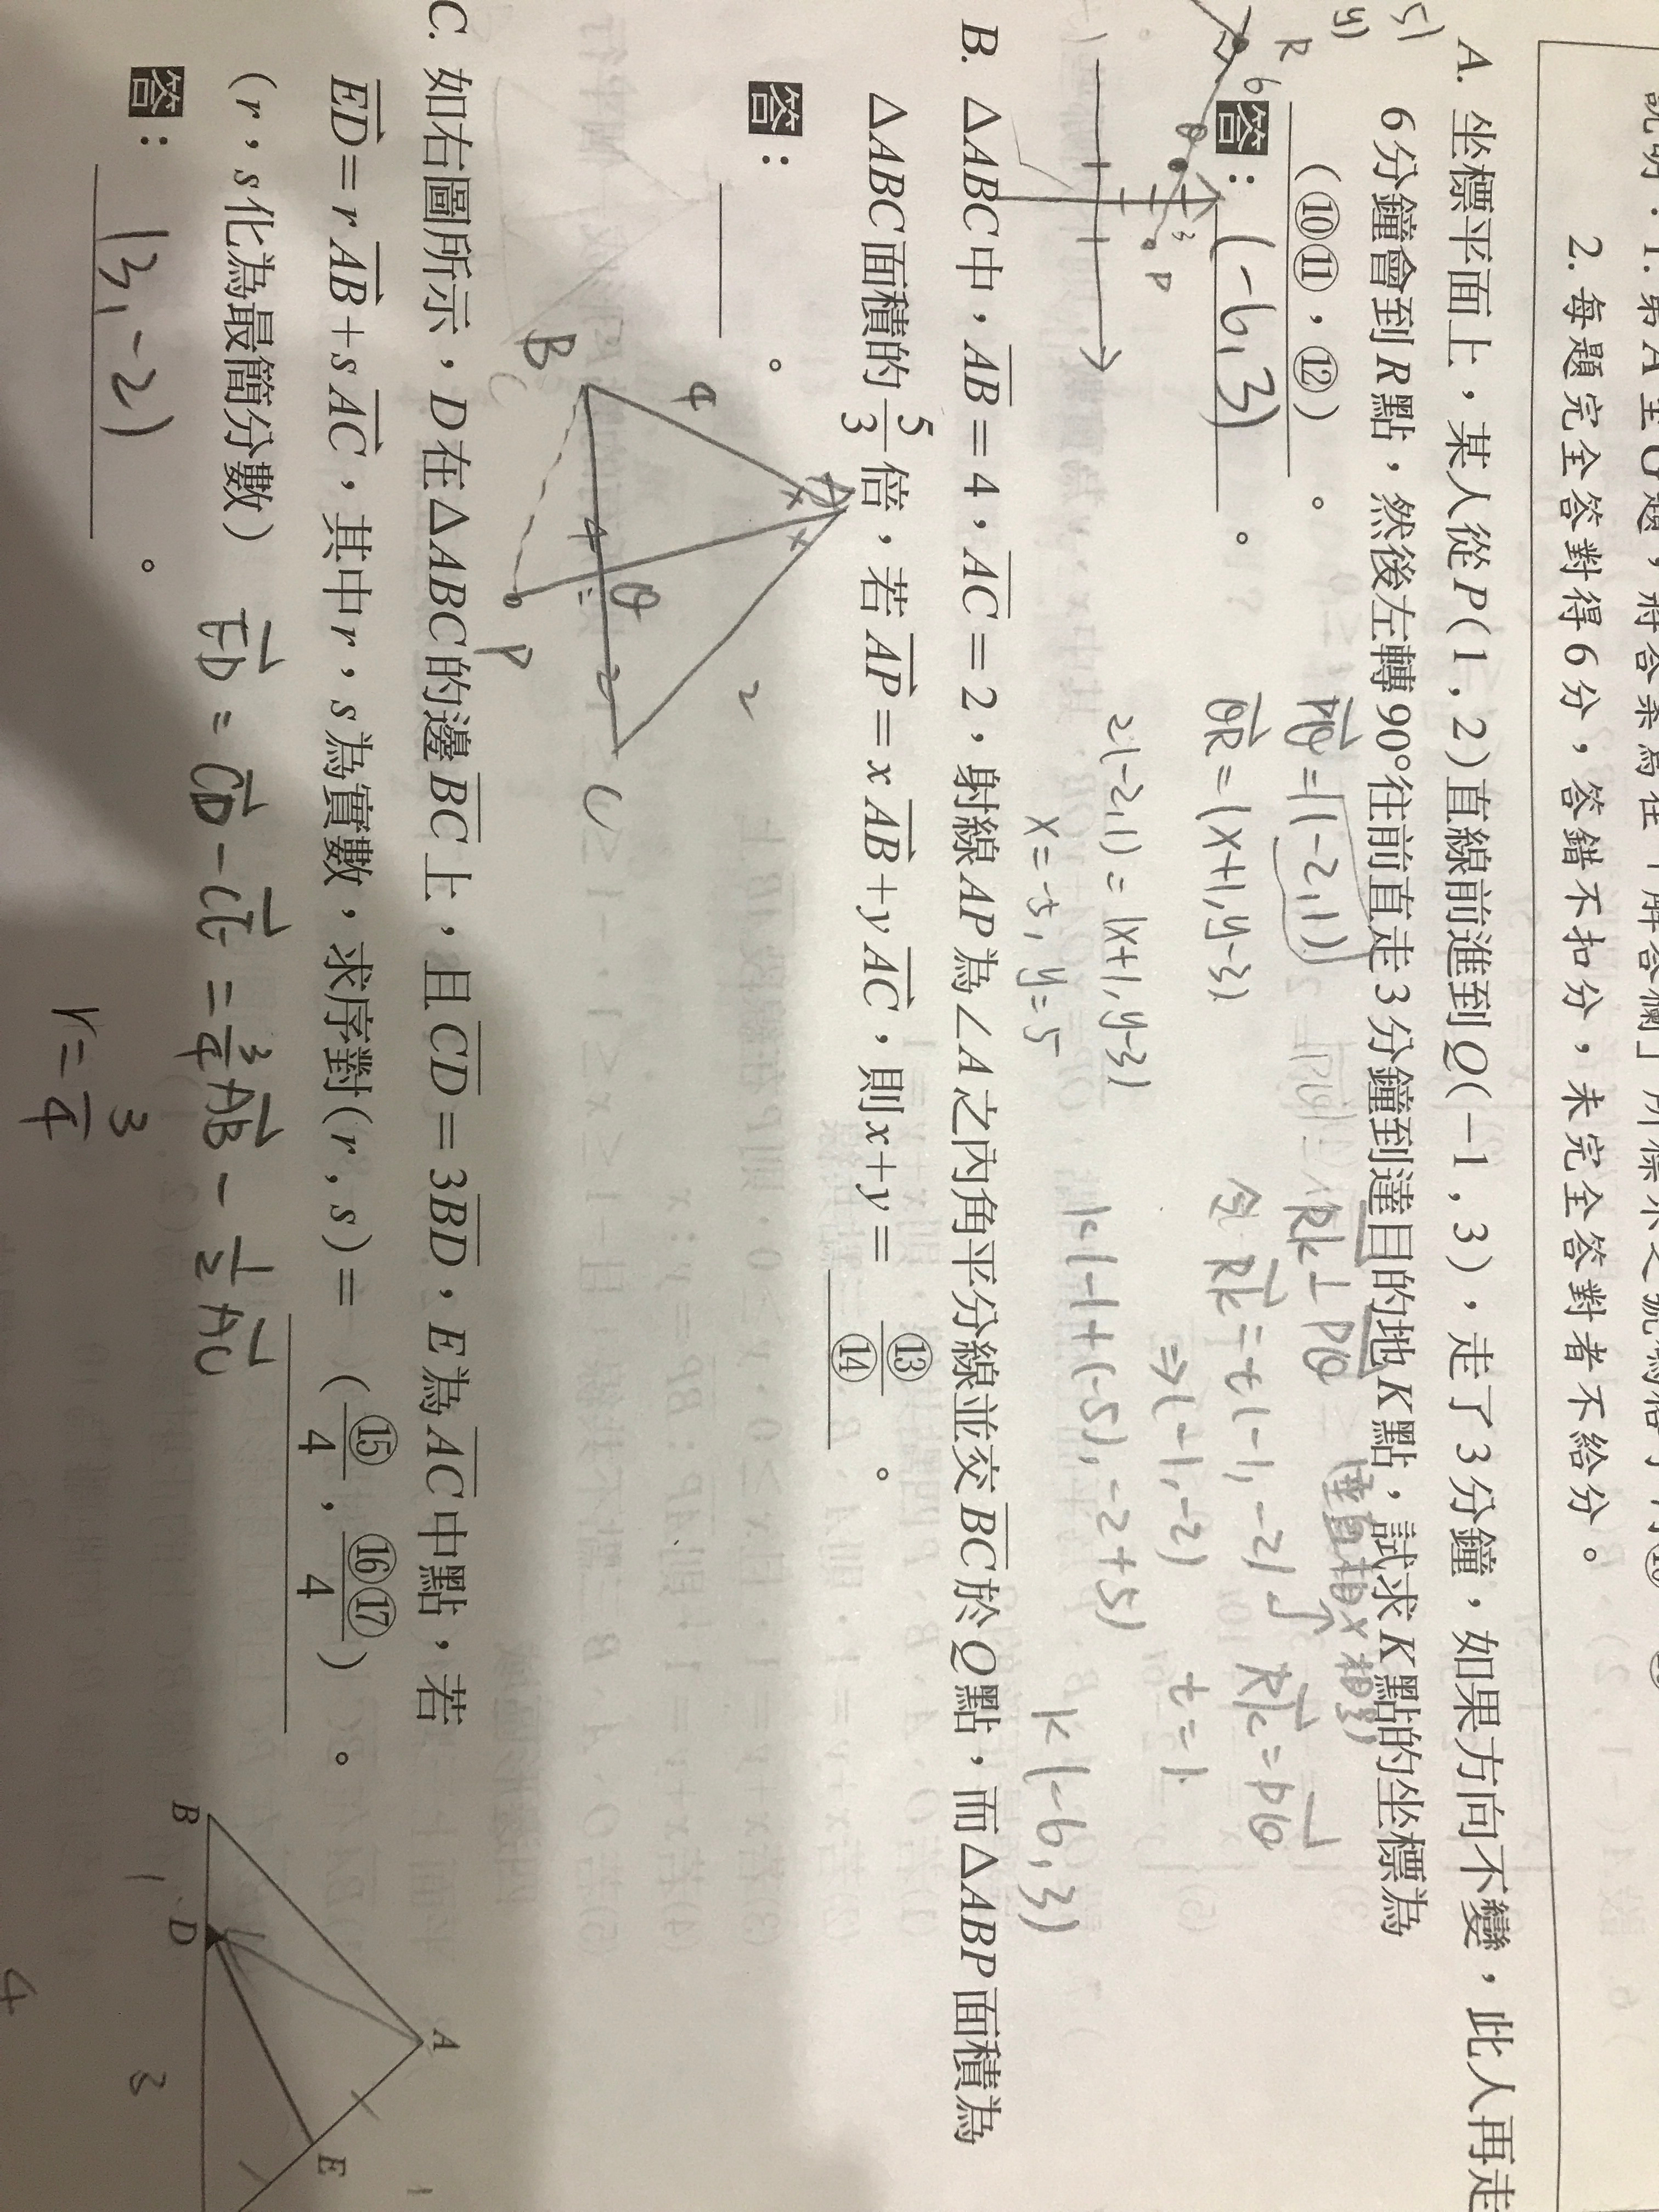 2. 每題完全答對得6分，答錯不扣分，未完全答對者不給分。
A. 坐標平面上，某人從P(1 , 2)直線前進到Q(−1 , 3)，走了3分鐘，如果方向不變，此人再走
6分鐘會到R點，然後左轉90°往前直走3分鐘到達目的地K點，試求K點的坐標為
(⑩⑪，⑫)。
答：(-6,3)。
PQ=(-2,1)
QR=(x+1,y-3)
2(-2,1)=(x+1,y-3)
x=-5, y=5
RK⊥PQ
令 RK=t(-1,-2)
⇒(-1,-2)
RK=PQ
t=1
K(-1+(-5),-2+5)
K(-6,3)
B. △ABC中，AB=4，AC=2，射線AP為∠A之內角平分線並交BC於Q點，而△ABP面積為
△ABC面積的5/3倍，若AP=xAB+yAC，則x+y=⑬/⑭。
答：　。
A
4
2
B
4
Q
2
C
P
C. 如右圖所示，D在△ABC的邊BC上，且CD=3BD，E為AC中點，若
ED=rAB+sAC，其中r，s為實數，求序對(r , s)=(⑮/4 , ⑯⑰/4)。
(r，s化為最簡分數)
答：(3,-2)。
ED=CD-CE=3/4AB-1/2AC
r=3/4
A
B
D
E
1
3
4